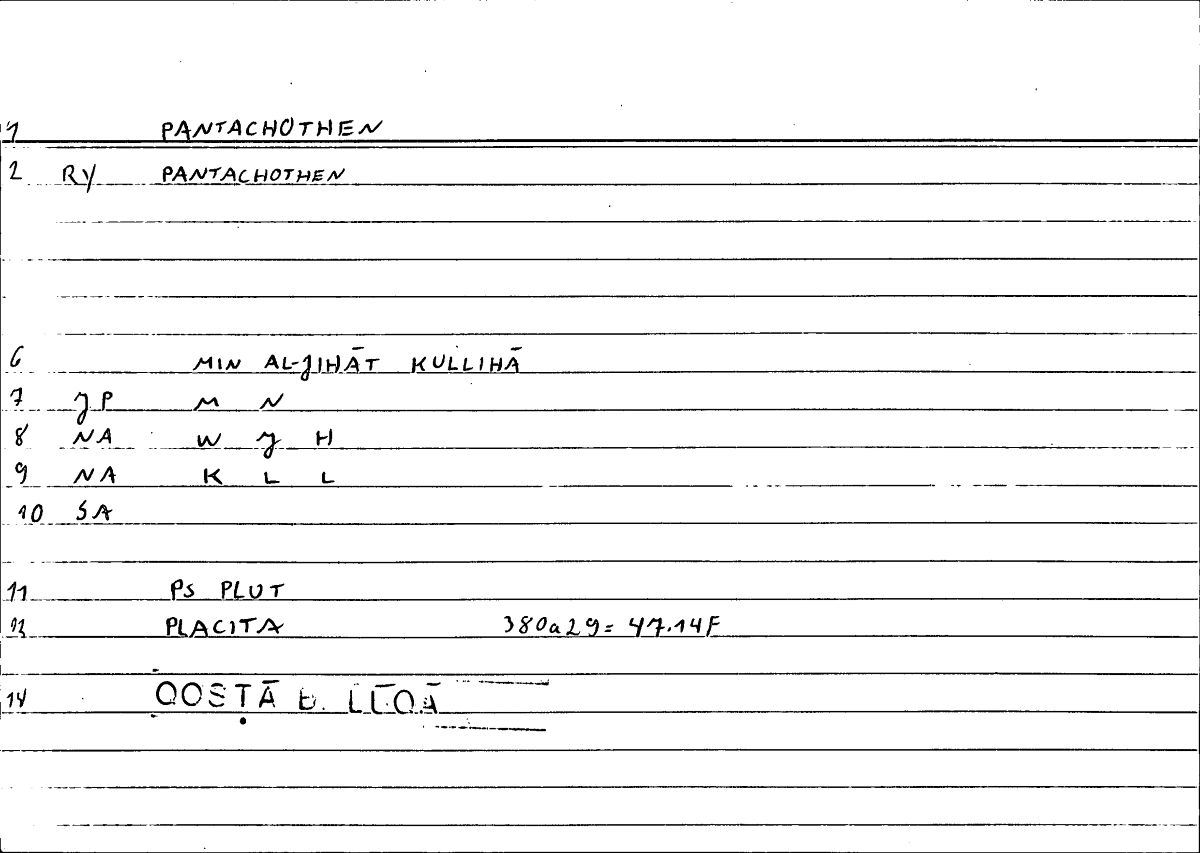 1 PANTACHÓTHEN
2 RY PANTACHOTHEN
6 MIN AL-JIHĀT KULLIHĀ
7 JP M N
8 NA W J H
9 NA K L L
10 SA
11 PS PLUT
12 PLACITA 380a29= 47.14F
14 QOSṬĀ B. LŪQĀ